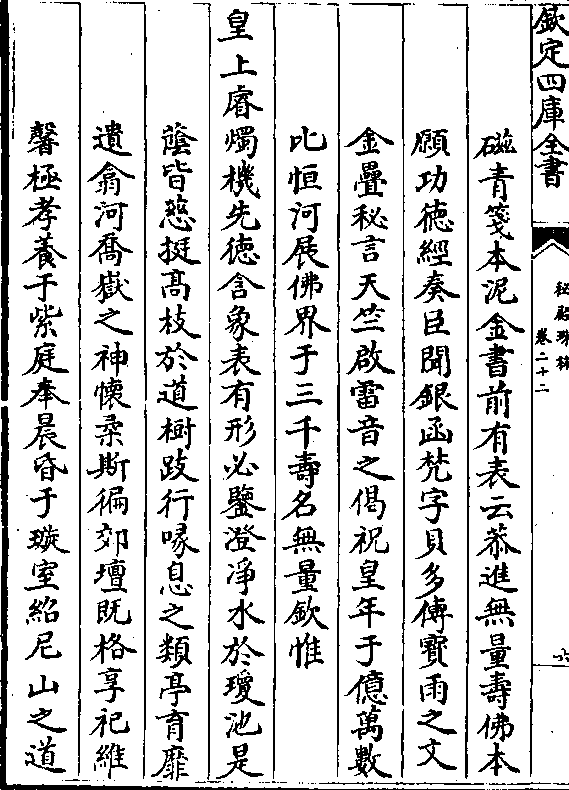 欽定四庫全書
秘殿珠林
卷二十二
六
磁青箋本泥金書前有表云恭進無量壽佛本
願功德經奏臣聞銀函梵字貝多傳寳雨之文
金疊秘言天竺啟雷音之偈祝皇年于億萬數
比恒河展佛界于三千壽名無量欽惟
皇上睿燭機先德含象表有形必鑒澄淨水於瓊池是
蔭皆慈挺高枝於道樹跂行喙息之類亭育靡
遺翕河喬嶽之神懷柔斯徧郊壇既格享祀維
馨極孝養于紫庭奉晨昏于璇室紹尼山之道